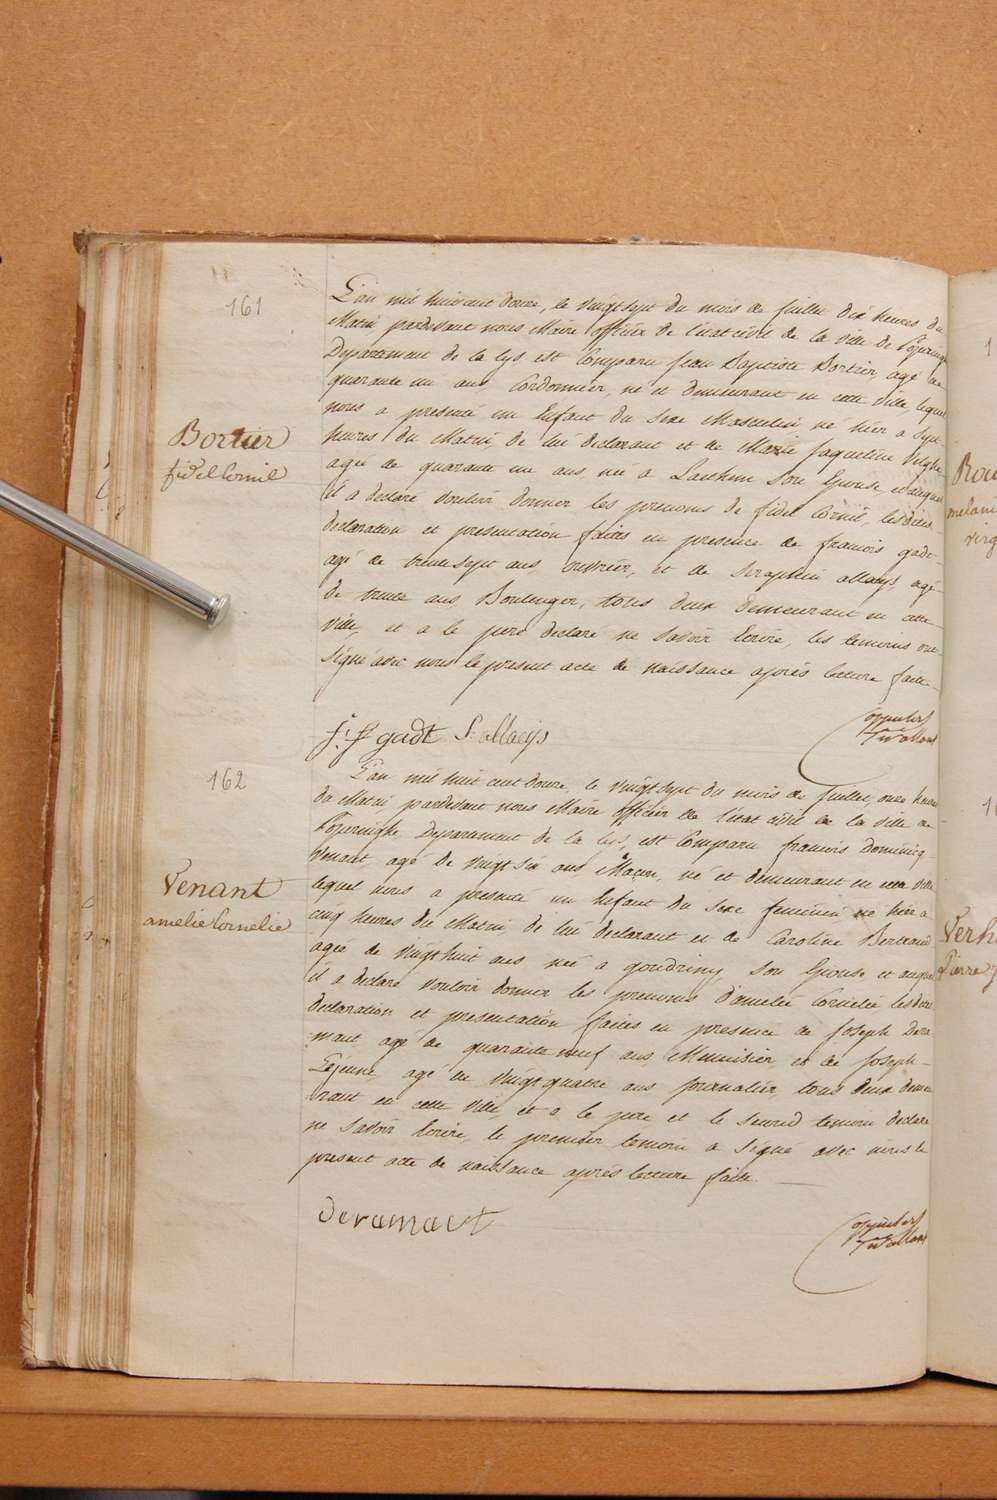 161
L'an mil huit cent douze, le vingt sept du mois de juillet dix heures du
Matin pardevant nous Maire officier de l'etat civil de la ville de Poperinge
Departement de la Lys est Comparu Jean Baptiste Bortier, agé de
quarante un ans, Cordonnier, né et demeurant en cette ville, lequel
nous a presenté un Enfant du sexe Masculin né hier a sept
heures du Matin, de lui declarant et de Marie Jaqueline
Bortier
fidel Cornil
agée de quarante un ans, née a son Epouse et auquel
il a declaré vouloir donner les prenoms de fidel Cornil, les dites
declaration et presentation faites en presence de francois gadt
agé de trente sept ans, ouvrier, et de Seraphin allaeys agé
de trente ans Boulenger, tous deux demeurant en cette
ville, et a le pere declaré ne savoir Ecrire, les temoins ont
signé avec nous le present acte de naissance après lecture faite
j: f gadt S: allaeys
162
L'an mil huit cent douze, le vingt sept du mois de Juillet, onze heures
du Matin pardevant nous Maire officier de l'etat civil de la ville de
Poperinghe Departement de la Lys, est Comparu francois Dominicq
Venant agé de vingt six ans Maçon, né et demeurant en cette ville
lequel nous a presenté un Enfant du sexe feminin né hier a
Venant
amelie Cornelie
cinq heures du Matin de lui declarant et de Caroline Bertrand
agée de vingt huit ans née a son Epouse et auquel
il a declaré vouloir donner les prenoms d'amelie Cornelie les dites
declaration et presentation faites en presence de Joseph Dera
maut agé de quarante neuf ans, Menuisier, et de Joseph
Lejeune, agé de vingt quatre ans journalier, tous deux demeu
rant en cette ville, et a le pere et le second temoin declaré
ne savoir Ecrire, le premier temoin a signé avec nous le
present acte de naissance après lecture faite.
deramaut
Rou
melani
virg
Verh
Pierre J